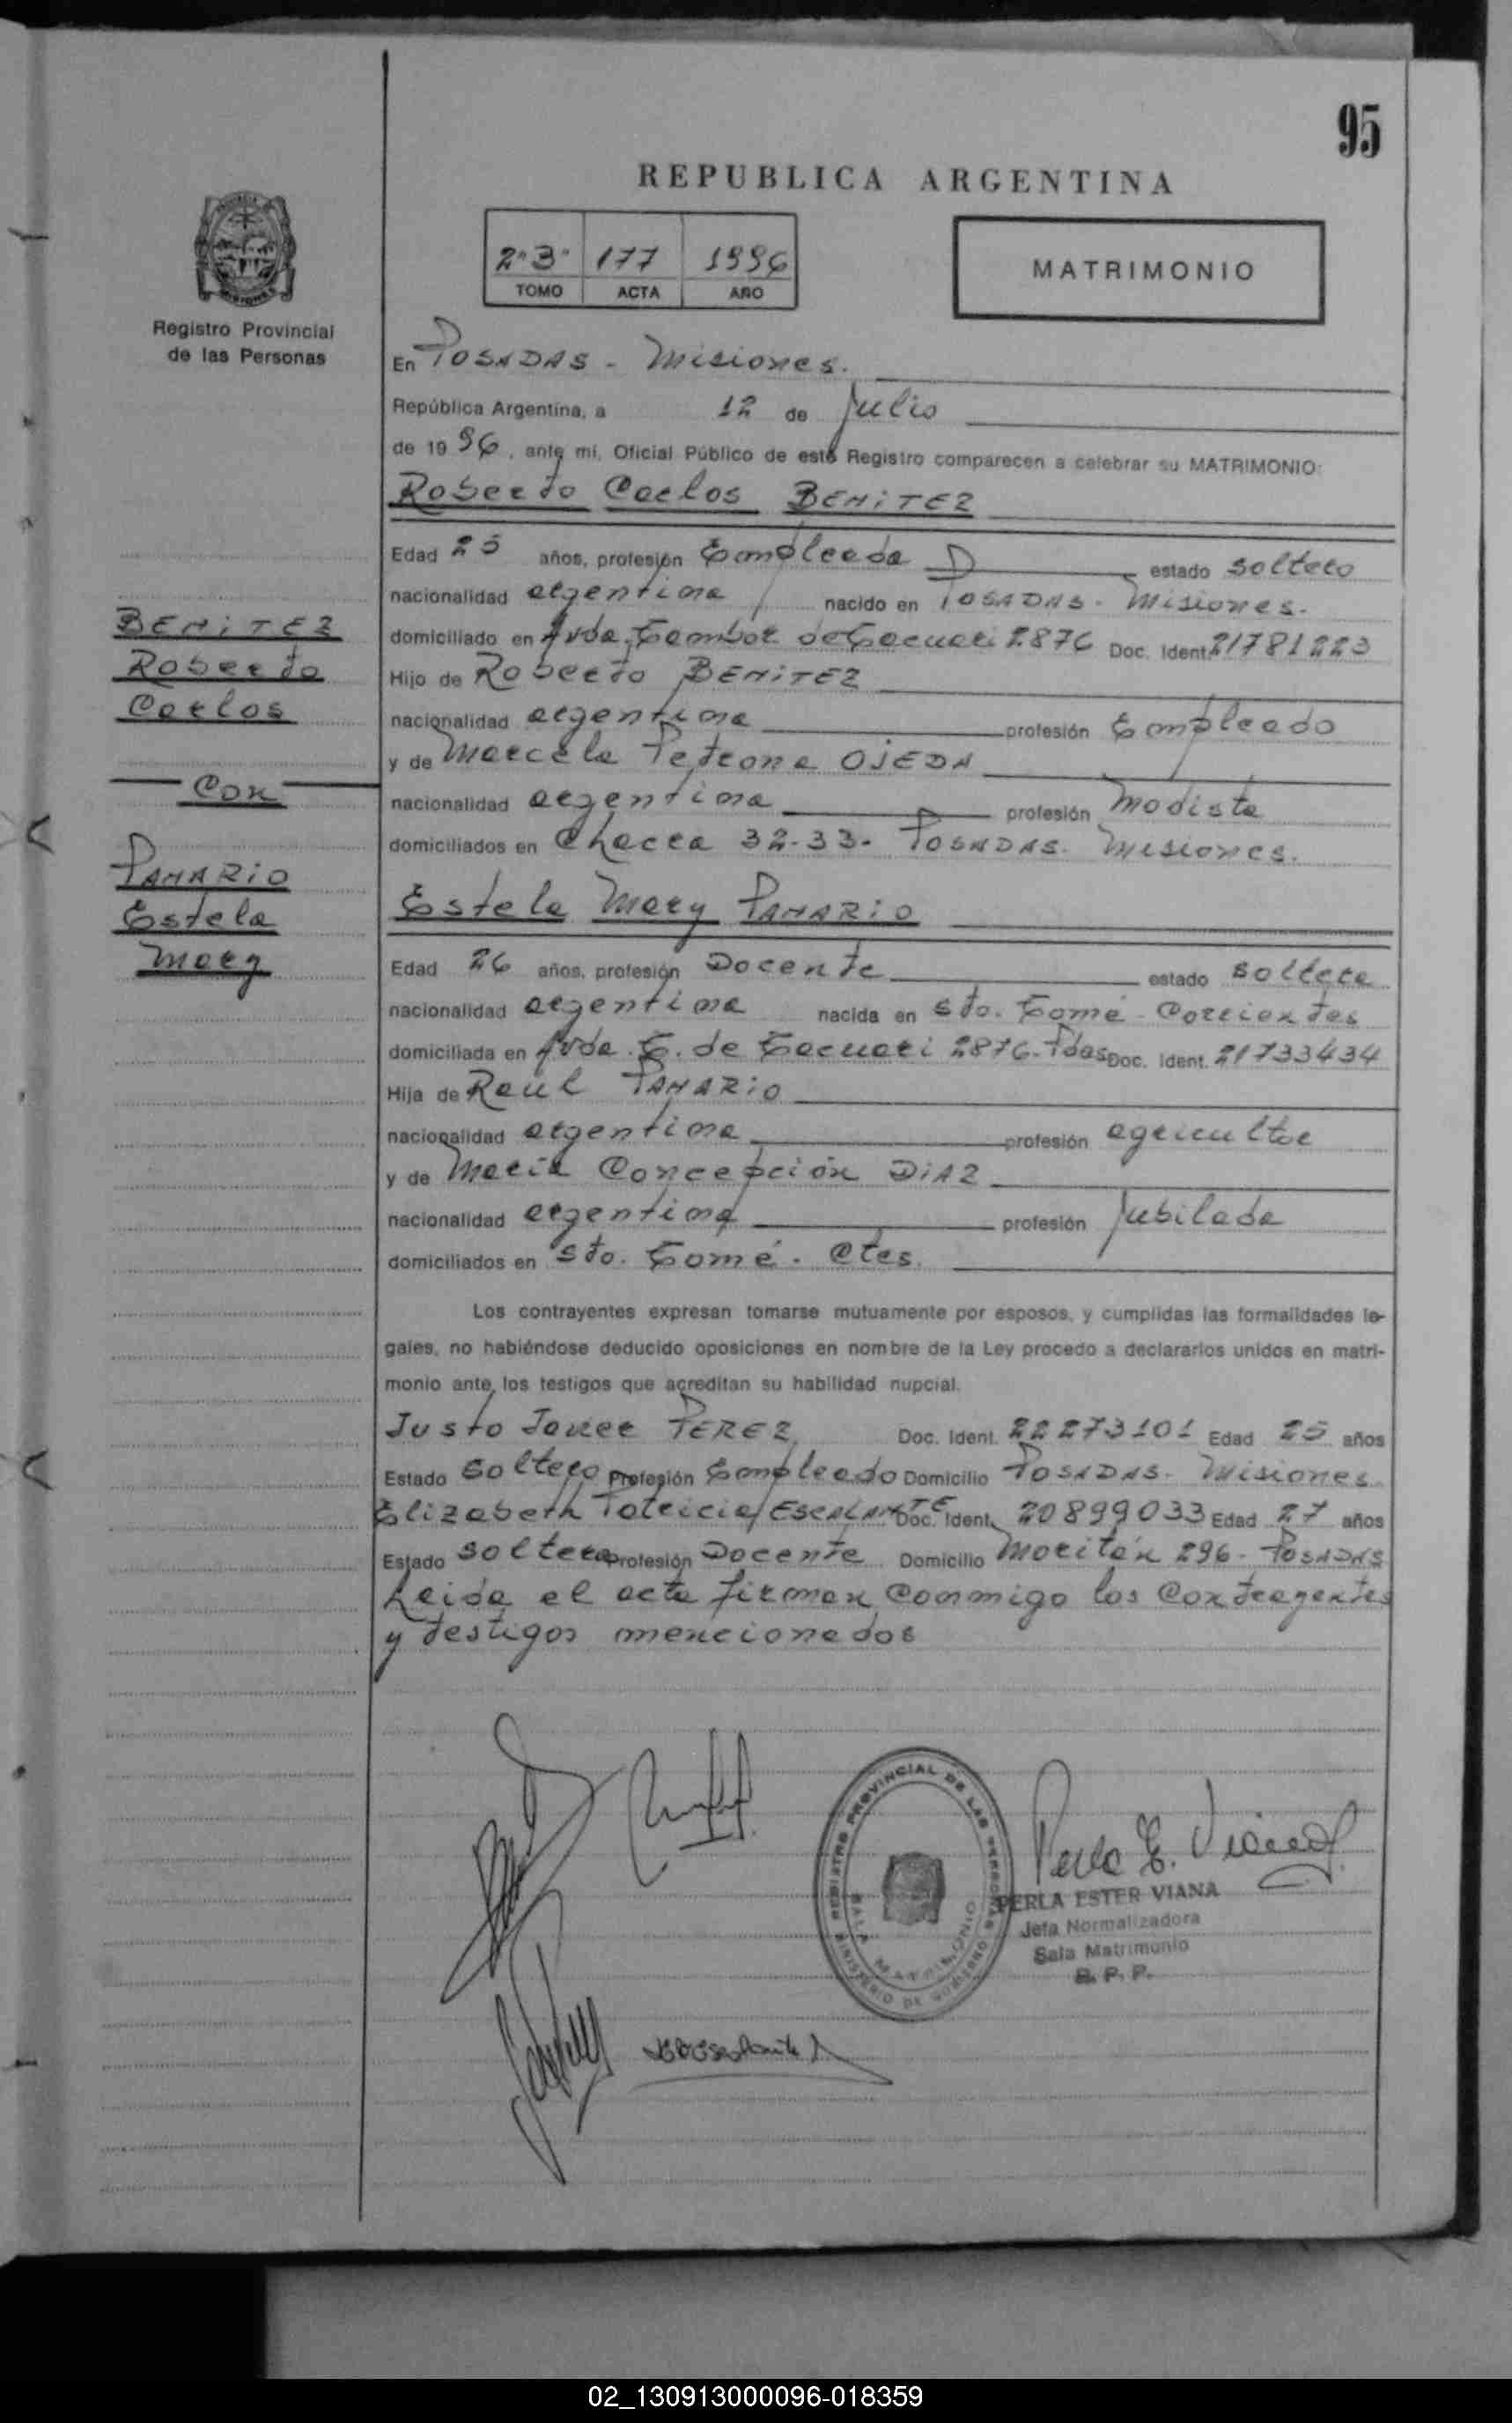 95
REPUBLICA ARGENTINA
2º 3º 177 1996
TOMO ACTA AÑO
MATRIMONIO
Registro Provincial
de las Personas
En POSADAS - Misiones.
República Argentina, a 12 de Julio
de 1996, ante mi, Oficial Público de este Registro comparecen a celebrar su MATRIMONIO:
Roberto Carlos BENITEZ
Edad 25 años, profesión Empleado estado soltero
nacionalidad argentina nacido en POSADAS - Misiones.
domiciliado en Avda. Tambor de Tacuari 2876 Doc. Ident. 21781223
Hijo de Roberto BENITEZ
nacionalidad argentina profesión Empleado
y de Marcela Petrona OJEDA
nacionalidad argentina profesión Modista
domiciliados en Chacra 32-33- POSADAS. Misiones.
Estela Mary PANARIO
Edad 26 años, profesión Docente estado soltera
nacionalidad argentina nacida en Sto. Tomé - Corrientes
domiciliada en Avda. T. de Tacuari 2876- Pdas Doc. Ident. 21733434
Hija de Raúl PANARIO
nacionalidad argentina profesión agricultor
y de María Concepción DIAZ
nacionalidad argentina profesión Jubilada
domiciliados en Sto. Tomé. Ctes.
Los contrayentes expresan tomarse mutuamente por esposos, y cumplidas las formalidades le-
gales, no habiéndose deducido oposiciones en nombre de la Ley procedo a declararlos unidos en matri-
monio ante los testigos que acreditan su habilidad nupcial.
Justo Javier PEREZ Doc. Ident. 22273101 Edad 25 años
Estado soltero Profesión Empleado Domicilio POSADAS - Misiones
Elizabeth Patricia ESCALANTE Doc. Ident. 20899033 Edad 27 años
Estado soltera Profesión Docente Domicilio Moritán 296 - POSADAS
Leida el acta firman conmigo los contrayentes
y testigos mencionados
BENITEZ
Roberto
Carlos
Con
PANARIO
Estela
Mary
REGISTRO PROVINCIAL DE LAS PERSONAS
SALA MATRIMONIO
MINISTERIO DE GOBIERNO
Perla E. Viana
PERLA ESTER VIANA
Jefa Normalizadora
Sala Matrimonio
R. P. P.
02_130913000096-018359